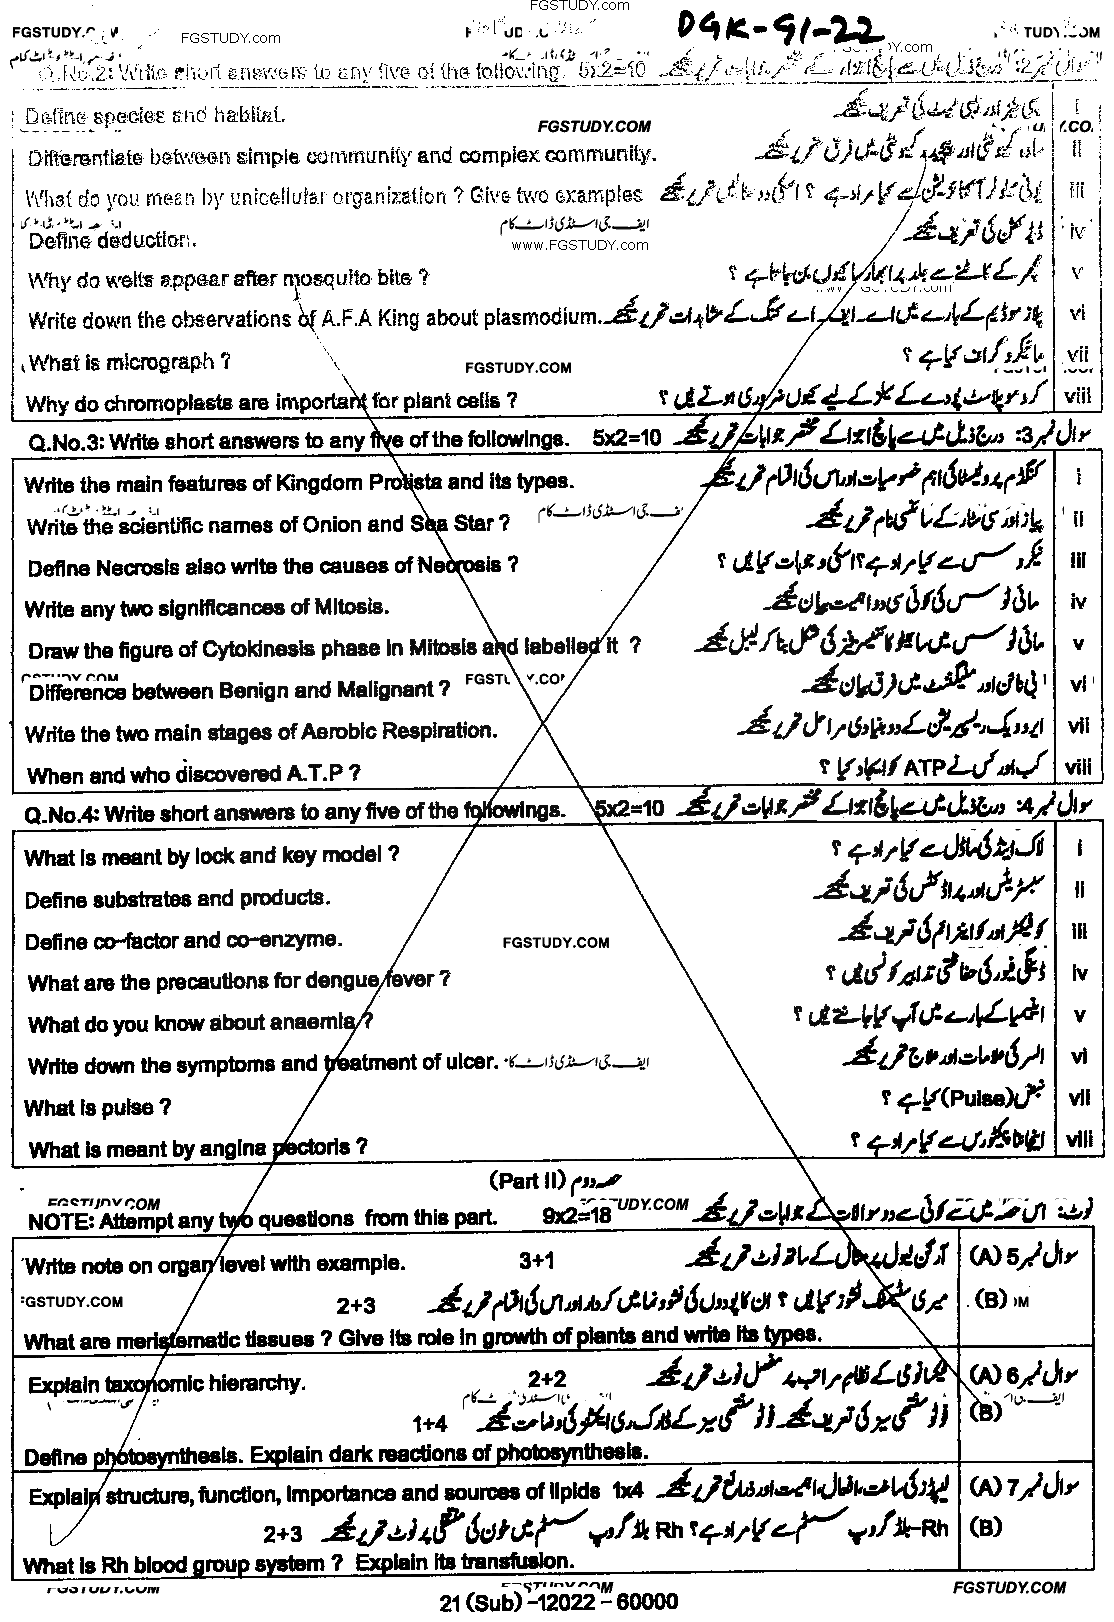 FGSTUDY.com
DGK-G1-22
FGSTUDY.com
Q.No.2: Write short answers to any five of the following. 5x2=10 سوال نمبر 2: درج ذیل میں سے پانچ اجزا کے مختصر جوابات تحریر کیجئے
Define species and habitat. سپی شیز اور ہیبی ٹیٹ کی تعریف کیجئے i
FGSTUDY.COM
Differentiate between simple community and complex community. سادہ کمیونٹی اور پیچیدہ کمیونٹی میں فرق تحریر کیجئے ii
What do you mean by unicellular organization ? Give two examples یونی سیلولر آرگنائزیشن سے کیا مراد ہے ؟ اسکی دو مثالیں تحریر کیجئے iii
ایف جی اسٹڈی ڈاٹ کام
Define deduction. ڈیڈکشن کی تعریف کیجئے iv
www.FGSTUDY.com
Why do welts appear after mosquito bite ? مچھر کے کاٹنے سے جلد پر ابھار سا کیوں بن جاتا ہے ؟ v
Write down the observations of A.F.A King about plasmodium. پلازموڈیم کے بارے میں اے۔ ایف۔ اے کنگ کے مشاہدات تحریر کیجئے vi
What is micrograph ? مائیکروگراف کیا ہے ؟ vii
FGSTUDY.COM
Why do chromoplasts are important for plant cells ? کروموپلاسٹ پودے کے سیلز کے لیے کیوں ضروری ہوتے ہیں ؟ viii
Q.No.3: Write short answers to any five of the followings. 5x2=10 سوال نمبر 3: درج ذیل میں سے پانچ اجزا کے مختصر جوابات تحریر کیجئے
Write the main features of Kingdom Protista and its types. کنگڈم پروٹسٹا کی اہم خصوصیات اور اس کی اقسام تحریر کیجئے i
Write the scientific names of Onion and Sea Star ? پیاز اور سی سٹار کے سائنسی نام تحریر کیجئے ii
Define Necrosis also write the causes of Necrosis ? نیکروسس سے کیا مراد ہے؟ اسکی وجوہات کیا ہیں ؟ iii
Write any two significances of Mitosis. مائی ٹوسس کی کوئی سی دو اہمیت بیان کیجئے iv
Draw the figure of Cytokinesis phase in Mitosis and labelled it ? مائی ٹوسس میں سائیٹوکائنیسز کی شکل بنا کر لیبل کیجئے v
FGSTUDY.COM
Difference between Benign and Malignant ? بی نائن اور میلگننٹ میں فرق بیان کیجئے vi
Write the two main stages of Aerobic Respiration. ایروبک ریسپریشن کے دو بنیادی مراحل تحریر کیجئے vii
When and who discovered A.T.P ? کب اور کس نے ATP کو ایجاد کیا ؟ viii
Q.No.4: Write short answers to any five of the followings. 5x2=10 سوال نمبر 4: درج ذیل میں سے پانچ اجزا کے مختصر جوابات تحریر کیجئے
What is meant by lock and key model ? لاک اینڈ کی ماڈل سے کیا مراد ہے ؟ i
Define substrates and products. سبسٹریٹس اور پراڈکٹس کی تعریف کیجئے ii
Define co-factor and co-enzyme. کوفیکٹر اور کو اینزائم کی تعریف کیجئے iii
FGSTUDY.COM
What are the precautions for dengue fever ? ڈینگی فیور کی حفاظتی تدابیر کونسی ہیں ؟ iv
What do you know about anaemia ? اینیمیا کے بارے میں آپ کیا جانتے ہیں ؟ v
Write down the symptoms and treatment of ulcer. السر کی علامات اور علاج تحریر کیجئے vi
What is pulse ? نبض (Pulse) کیا ہے ؟ vii
What is meant by angina pectoris ? انجائنا پیکٹورس سے کیا مراد ہے ؟ viii
(Part II) حصہ دوم
FGSTUDY.COM
NOTE: Attempt any two questions from this part. 9x2=18 نوٹ: اس حصہ میں سے کوئی سے دو سوالات کے جوابات تحریر کیجئے
Write note on organ level with example. 3+1 آرگن لیول پر مثال کے ساتھ نوٹ تحریر کیجئے (A) سوال نمبر 5
2+3 میری سٹیمیٹک ٹشوز کیا ہیں ؟ ان کا پودوں کی نشوونما میں کردار اور اس کی اقسام تحریر کیجئے (B)
What are meristematic tissues ? Give its role in growth of plants and write its types.
Explain taxonomic hierarchy. 2+2 ٹیکسانومی کے نظام مراتب پر مفصل نوٹ تحریر کیجئے (A) سوال نمبر 6
1+4 فوٹو سنتھی سیز کی تعریف کیجئے۔ فوٹو سنتھی سیز کے ڈارک ری ایکشنز کی وضاحت کیجئے (B)
Define photosynthesis. Explain dark reactions of photosynthesis.
Explain structure, function, importance and sources of lipids 1x4 لپڈز کی ساخت، افعال، اہمیت اور ذرائع تحریر کیجئے (A) سوال نمبر 7
2+3 Rh- بلڈ گروپ سسٹم سے کیا مراد ہے؟ Rh بلڈ گروپ سسٹم میں خون کی منتقلی پر نوٹ تحریر کیجئے (B)
What is Rh blood group system ? Explain its transfusion.
FGSTUDY.COM
21 (Sub) -12022 - 60000